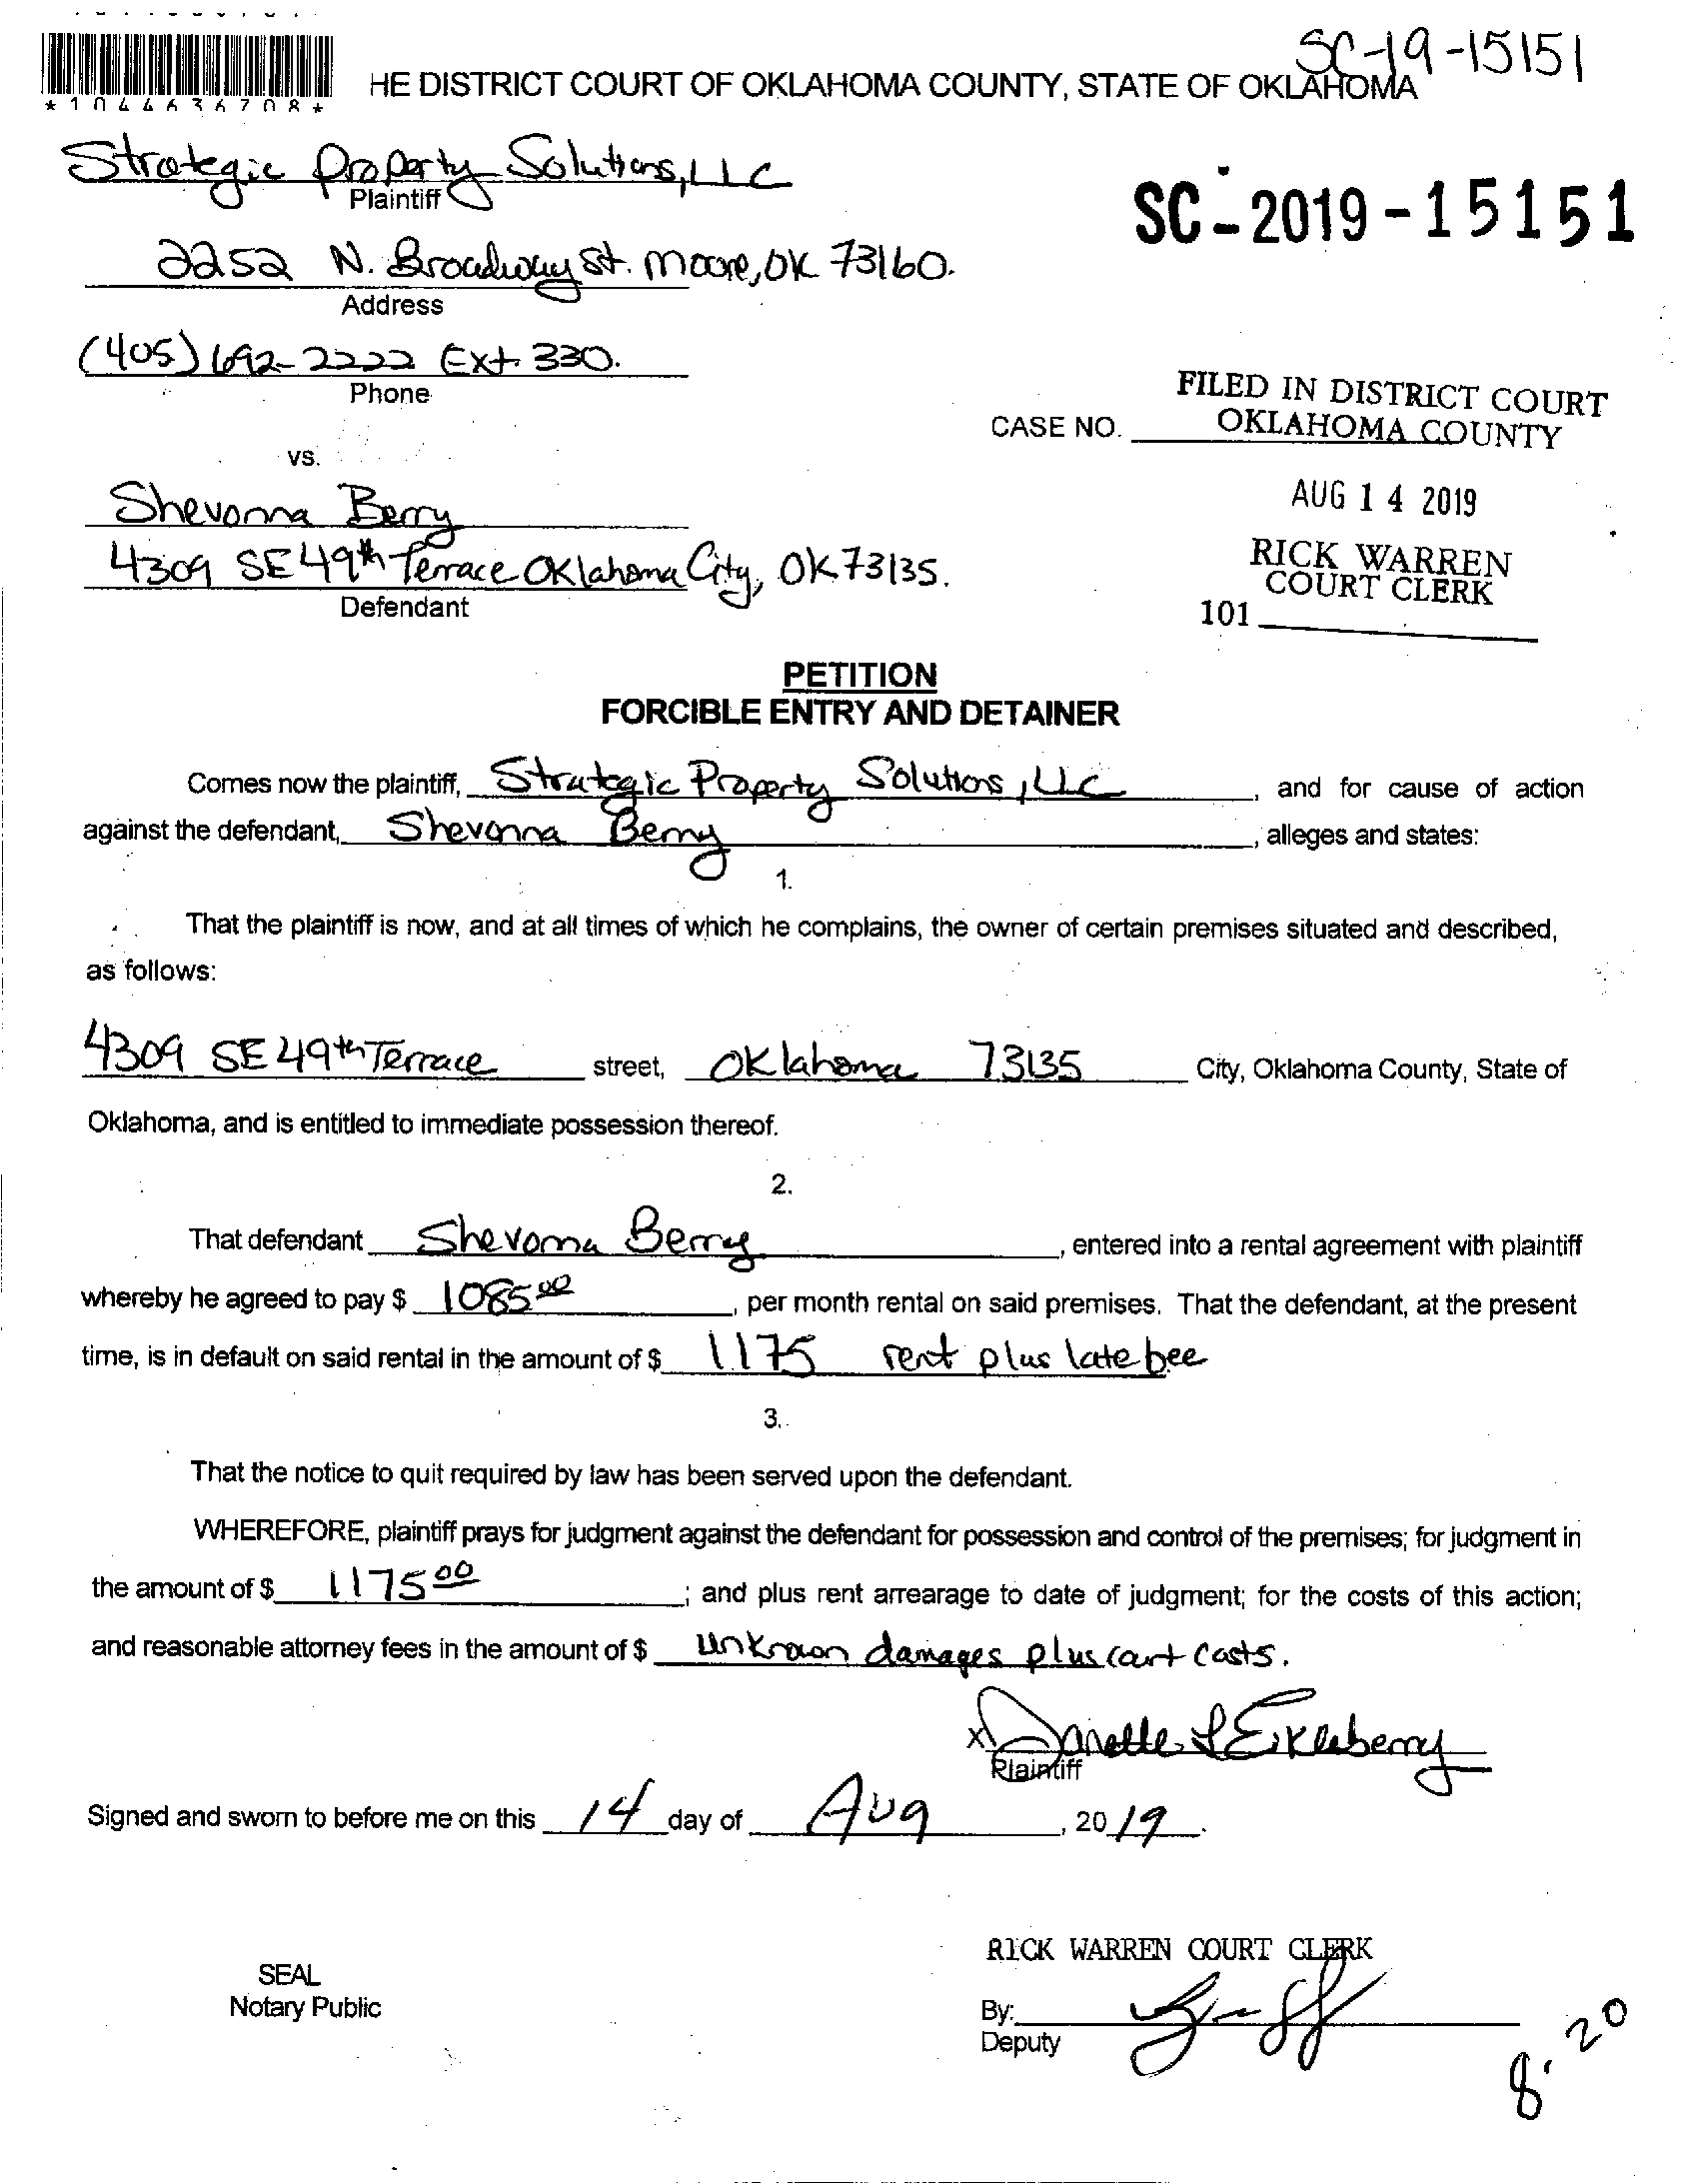 SC-19-15151
*1044636708*
HE DISTRICT COURT OF OKLAHOMA COUNTY, STATE OF OKLAHOMA
Strategic Property Solutions, LLC
Plaintiff
SC-2019-15151
2252 N. Broadway St. Moore, OK 73160.
Address
(405) 692-2222 Ext. 330.
Phone
FILED IN DISTRICT COURT
CASE NO. OKLAHOMA COUNTY
vs.
AUG 14 2019
Shevonna Berry
RICK WARREN
4309 SE 49th Terrace Oklahoma City, OK 73135.
COURT CLERK
Defendant
101
PETITION
FORCIBLE ENTRY AND DETAINER
Comes now the plaintiff, Strategic Property Solutions, LLC, and for cause of action
against the defendant, Shevonna Berry, alleges and states:
1.
That the plaintiff is now, and at all times of which he complains, the owner of certain premises situated and described,
as follows:
4309 SE 49th Terrace street, Oklahoma 73135 City, Oklahoma County, State of
Oklahoma, and is entitled to immediate possession thereof.
2.
That defendant Shevonna Berry, entered into a rental agreement with plaintiff
whereby he agreed to pay $ 1085 00, per month rental on said premises. That the defendant, at the present
time, is in default on said rental in the amount of $ 1175 rent plus late fee
3.
That the notice to quit required by law has been served upon the defendant.
WHEREFORE, plaintiff prays for judgment against the defendant for possession and control of the premises; for judgment in
the amount of $ 1175 00; and plus rent arrearage to date of judgment; for the costs of this action;
and reasonable attorney fees in the amount of $ unknown damages plus court costs.
x Janette L Eikleberry
Plaintiff
Signed and sworn to before me on this 14 day of Aug, 20 19.
RICK WARREN COURT CLERK
SEAL
Notary Public
By:
Deputy
8.20